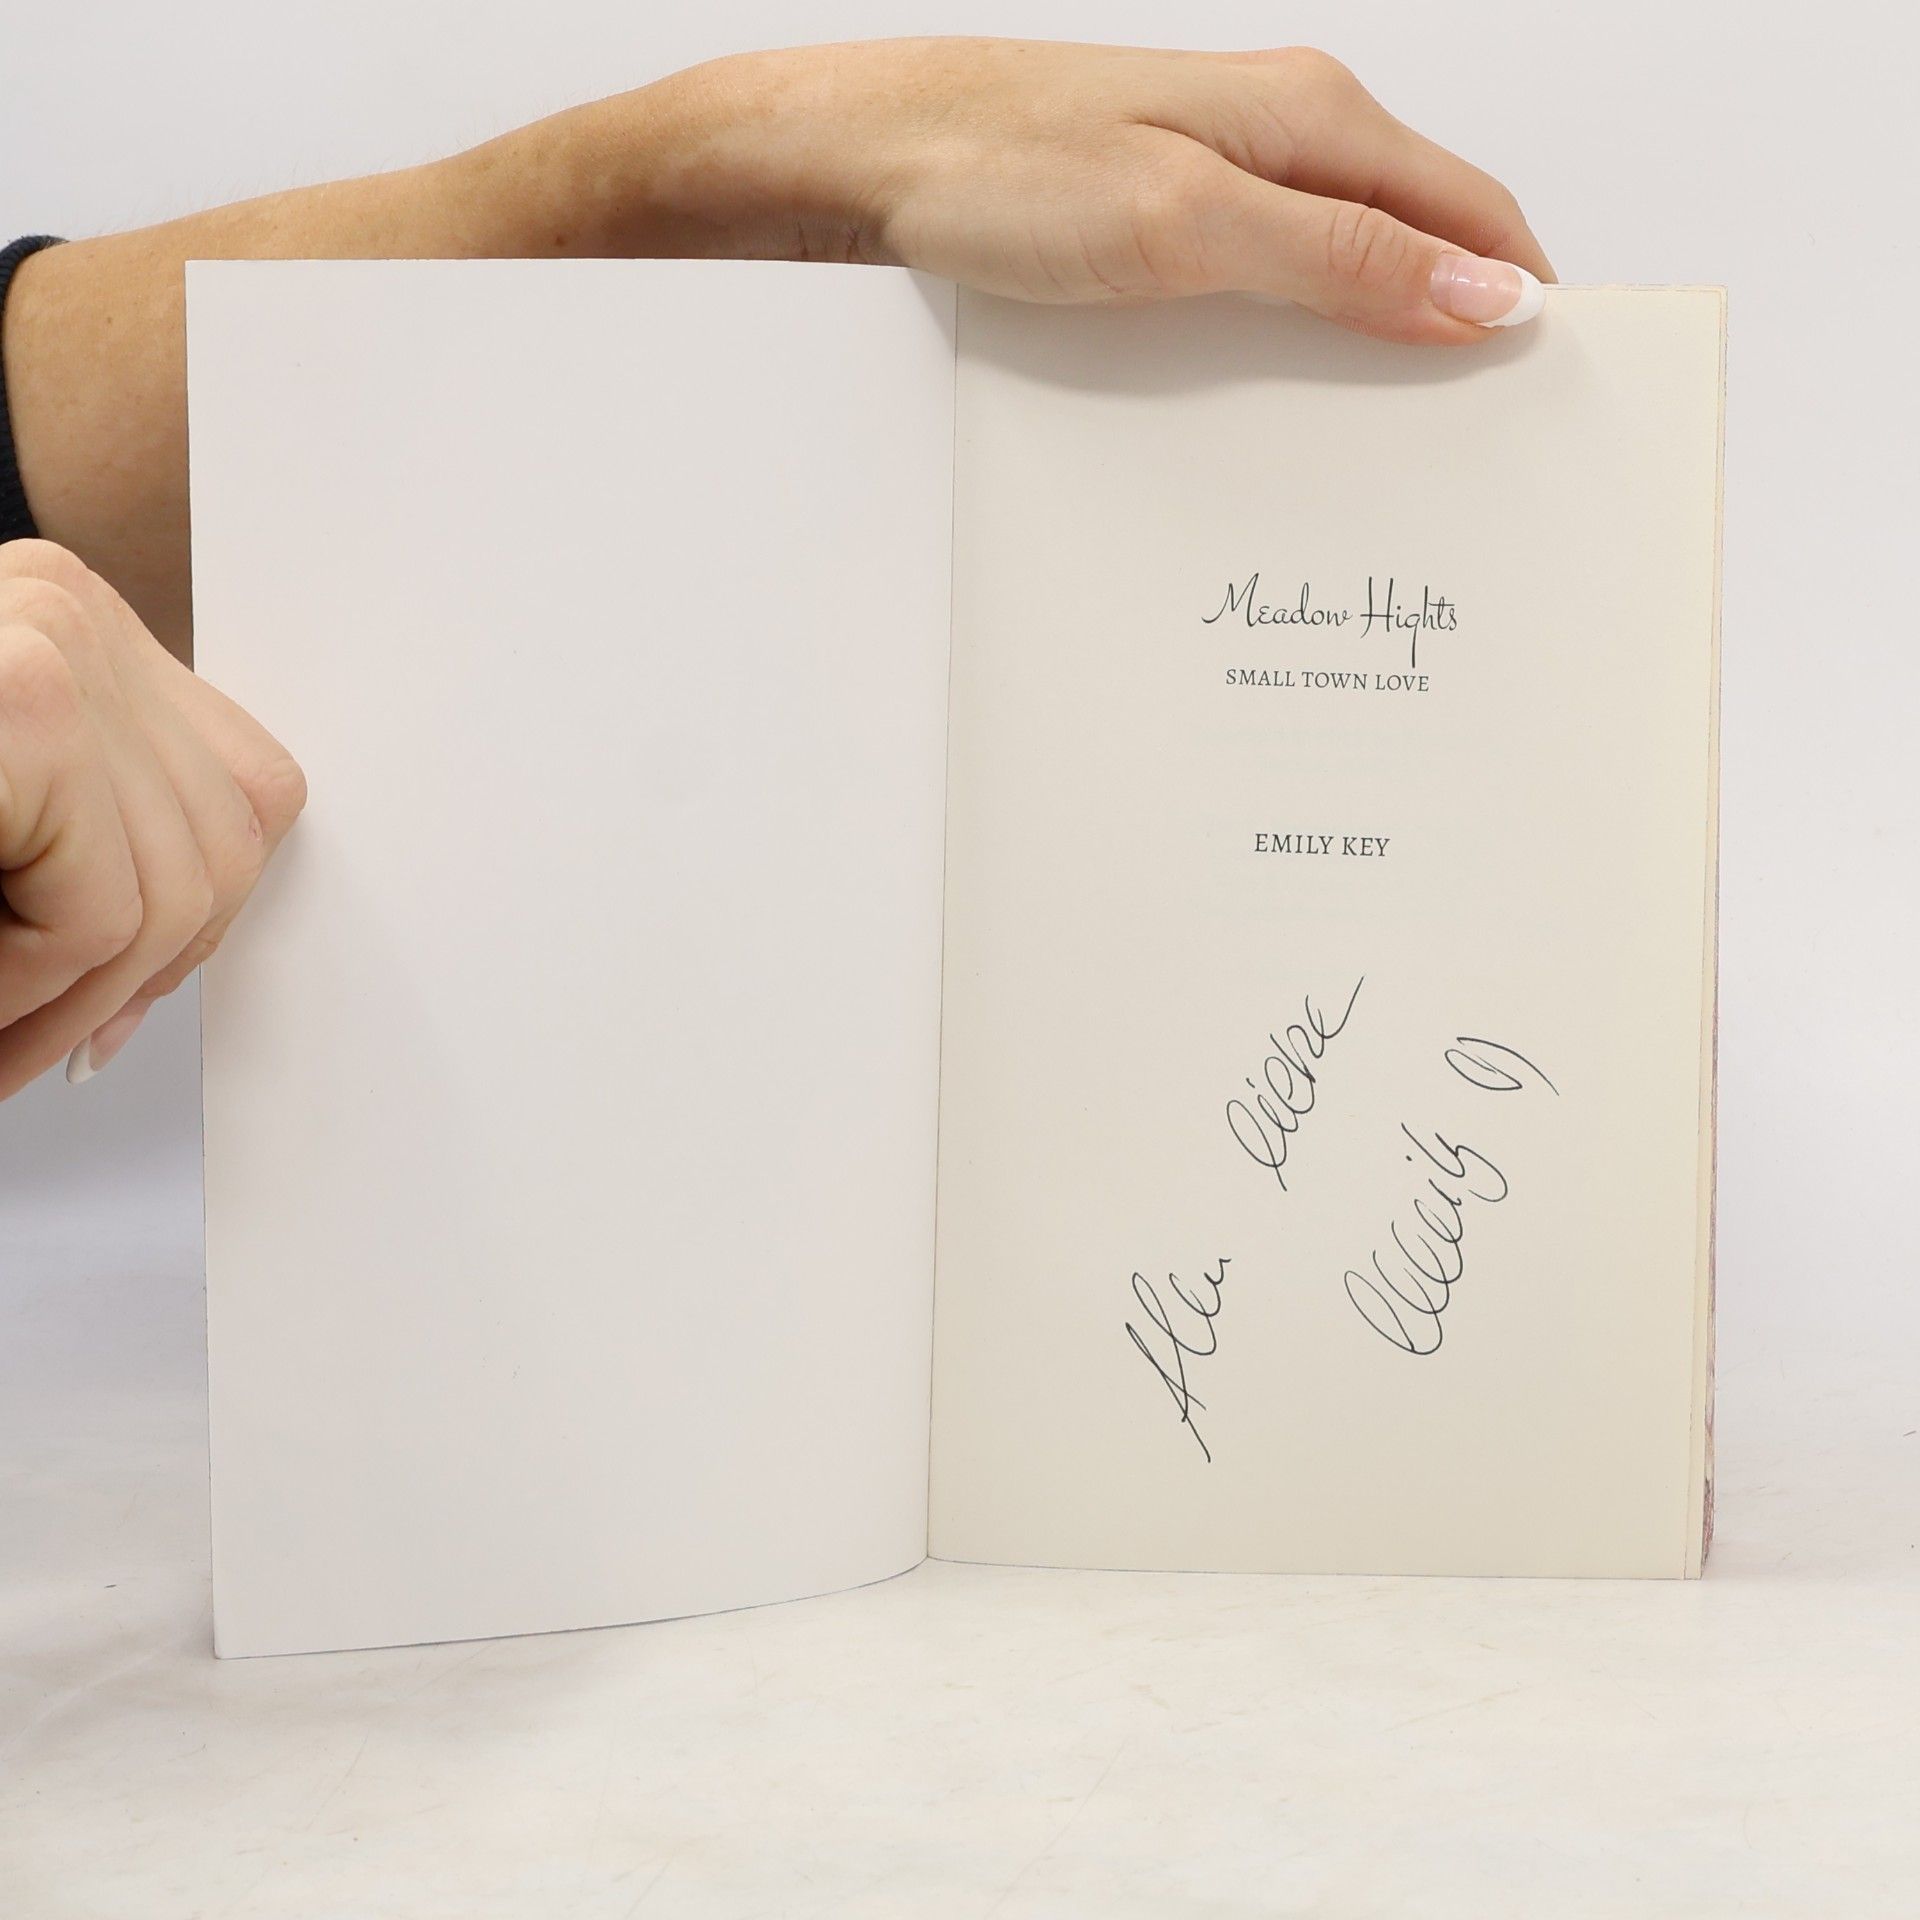 Meadow Hights
SMALL TOWN LOVE
EMILY KEY
Alles Liebe
Emily